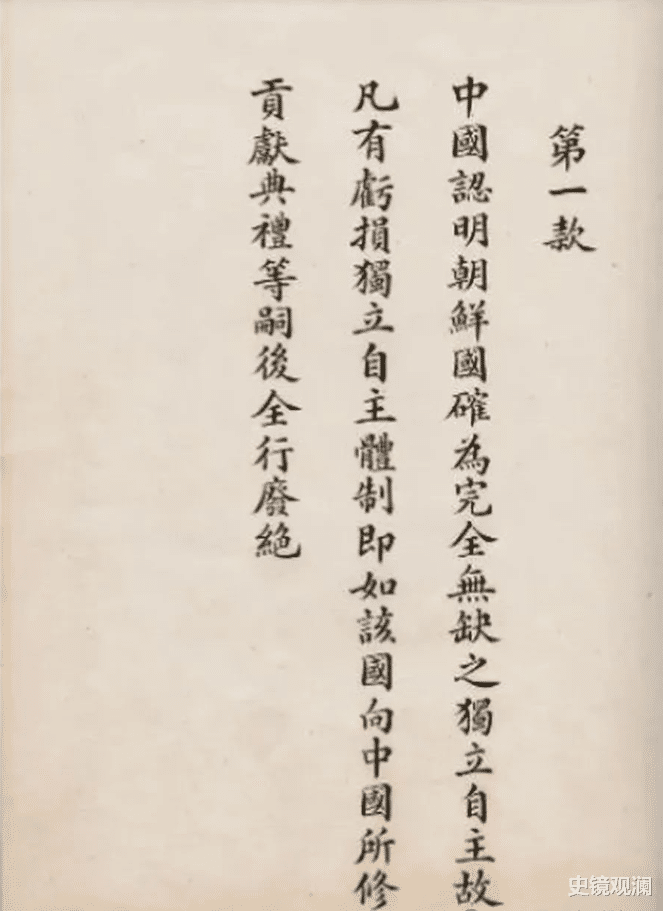 第一款
中國認明朝鮮國確為完全無缺之獨立自主故
凡有虧損獨立自主體制即如該國向中國所修
貢獻典禮等嗣後全行廢絕
史镜观澜